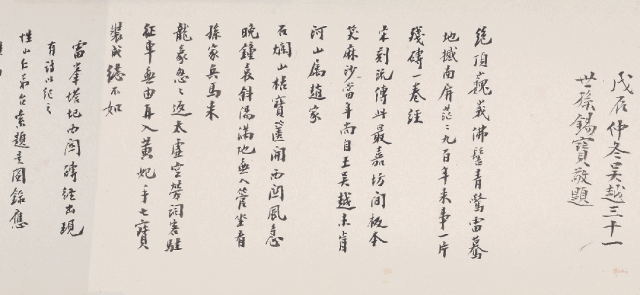 戊辰仲冬吳越三十一
世孫錫寶敬題
絕頂巍峩佛髻青驚雷驀
地撼南屏茫茫九百年來事一片
殘磚一卷經
宋刻流傳此最嘉坊間板本
笑麻沙當年尚自王吳越未肯
河山屬趙家
石爛山枯寶篋開西關風急
晚鐘哀斜陽滿地無人管坐看
孫家兵馬來
龍象忽忽返太虛空勞詞客駐
征車無由再入黃妃手七寶
裝成總不如
雷峯塔圮西關磚經出現
有詩以紀之
性山仁弟台索題是圖錄應